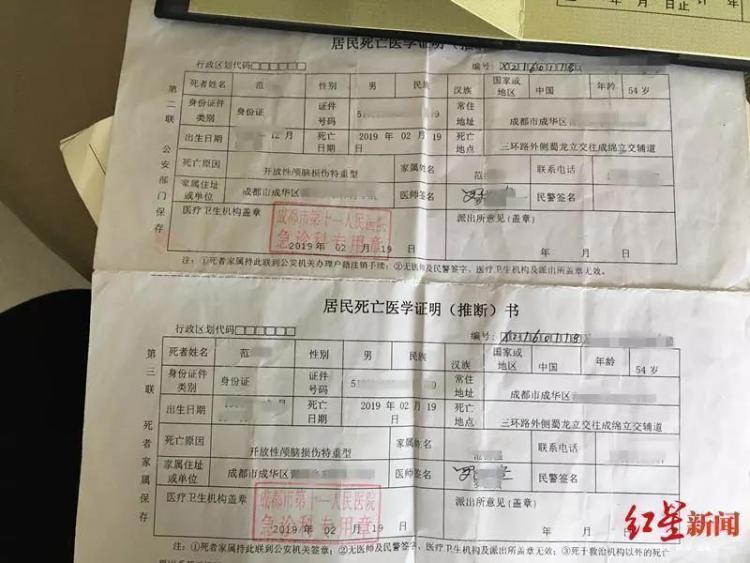 月 日止 计 年
居民死亡医学证明（推断）
行政区划代码□□□□□□ 编号：
死者姓名 范 性别 男 民族 汉族 国家或地区 中国 年龄 54 岁
身份证件类别 身份证 证件号码 5 9 常住地址 成都市成华区
出生日期 12月 死亡日期 2019 年 02 月 19 日 死亡地点 三环路外侧蜀龙立交往成绵立交辅道
死亡原因 开放性颅脑损伤特重型 家属姓名 范 联系电话
家属住址或单位 成都市成华区 医师签名 民警签名
医疗卫生机构盖章 派出所意见（盖章）
成都市第十一人民医院
急诊科专用章
2019 年 02 月 19 日 年 月 日
注：①死者家属持此联到公安机关办理户籍注销手续；②无医师及民警签字、医疗卫生机构及派出所盖章无效。
第二联 公安部门保存
居民死亡医学证明（推断）书
行政区划代码□□□□□□ 编号：
死者姓名 范 性别 男 民族 汉族 国家或地区 中国 年龄 54 岁
身份证件类别 身份证 证件号码 5 9 常住地址 成都市成华区
出生日期 死亡日期 2019 年 02 月 19 日 死亡地点 三环路外侧蜀龙立交往成绵立交辅道
死亡原因 开放性颅脑损伤特重型 家属姓名 联系电话
家属住址或单位 成都市成华区 医师签名 民警签名
医疗卫生机构盖章 派出所意见（盖章）
成都市第十一人民医院
急诊科专用章
2019 年 02 月 19 日 年 月 日
注：①死者家属持此联到公安机关签章；②无医师及民警签字、医疗卫生机构及派出所盖章无效；③死于救治机构以外的死亡
第三联 死者家属保存
红星新闻